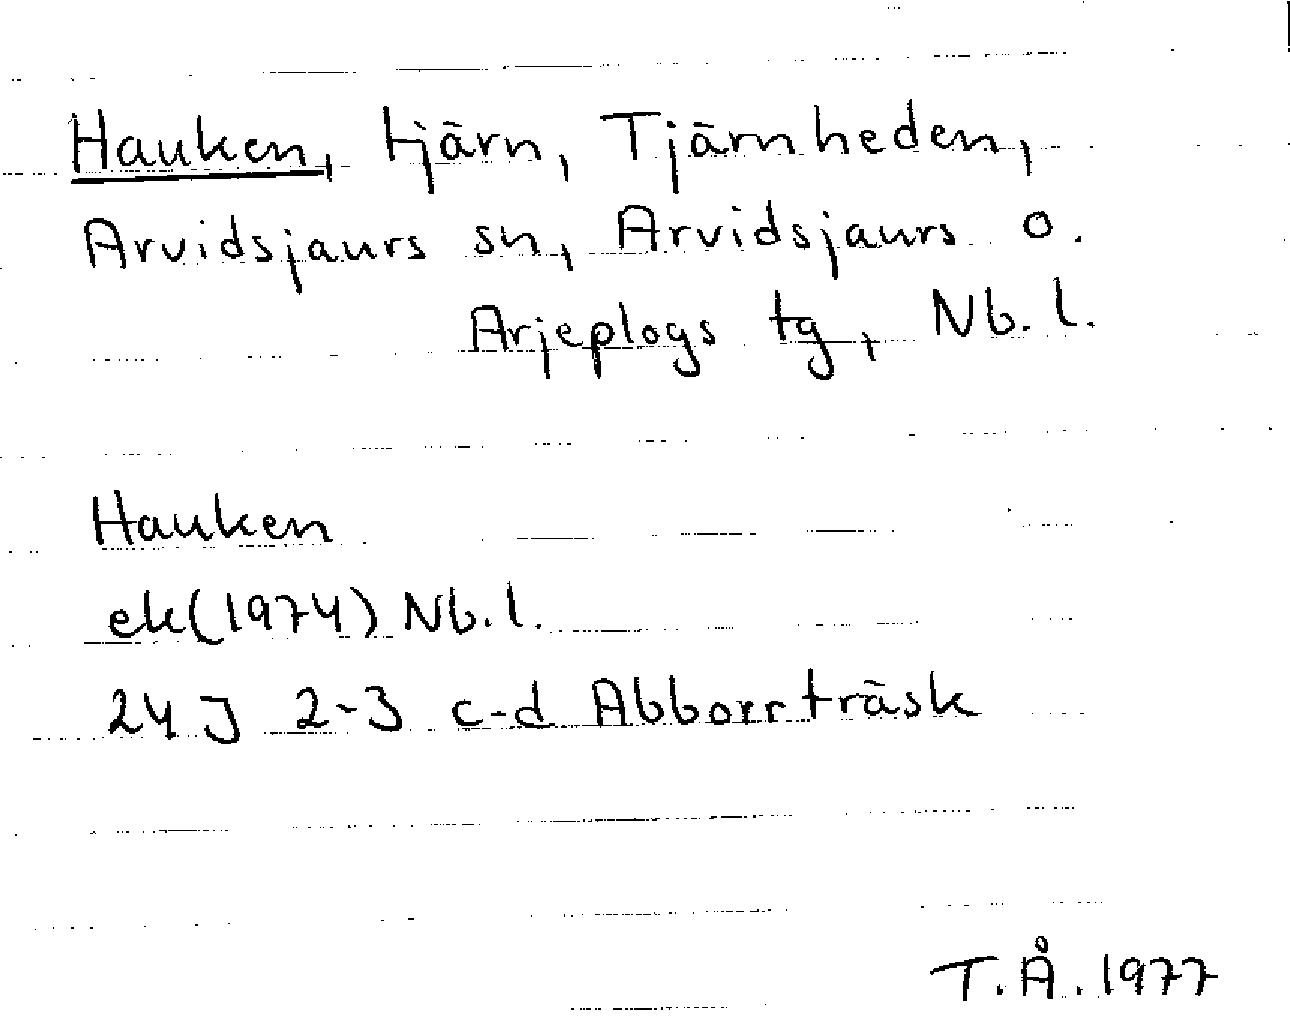 Hauken, tjärn, Tjärnheden,
Arvidsjaurs sn, Arvidsjaurs o.
Arjeplogs tg, Nb. l.
Hauken
ek(1974) Nb. l.
24 J 2-3 c-d Abborrträsk
T.Å. 1977